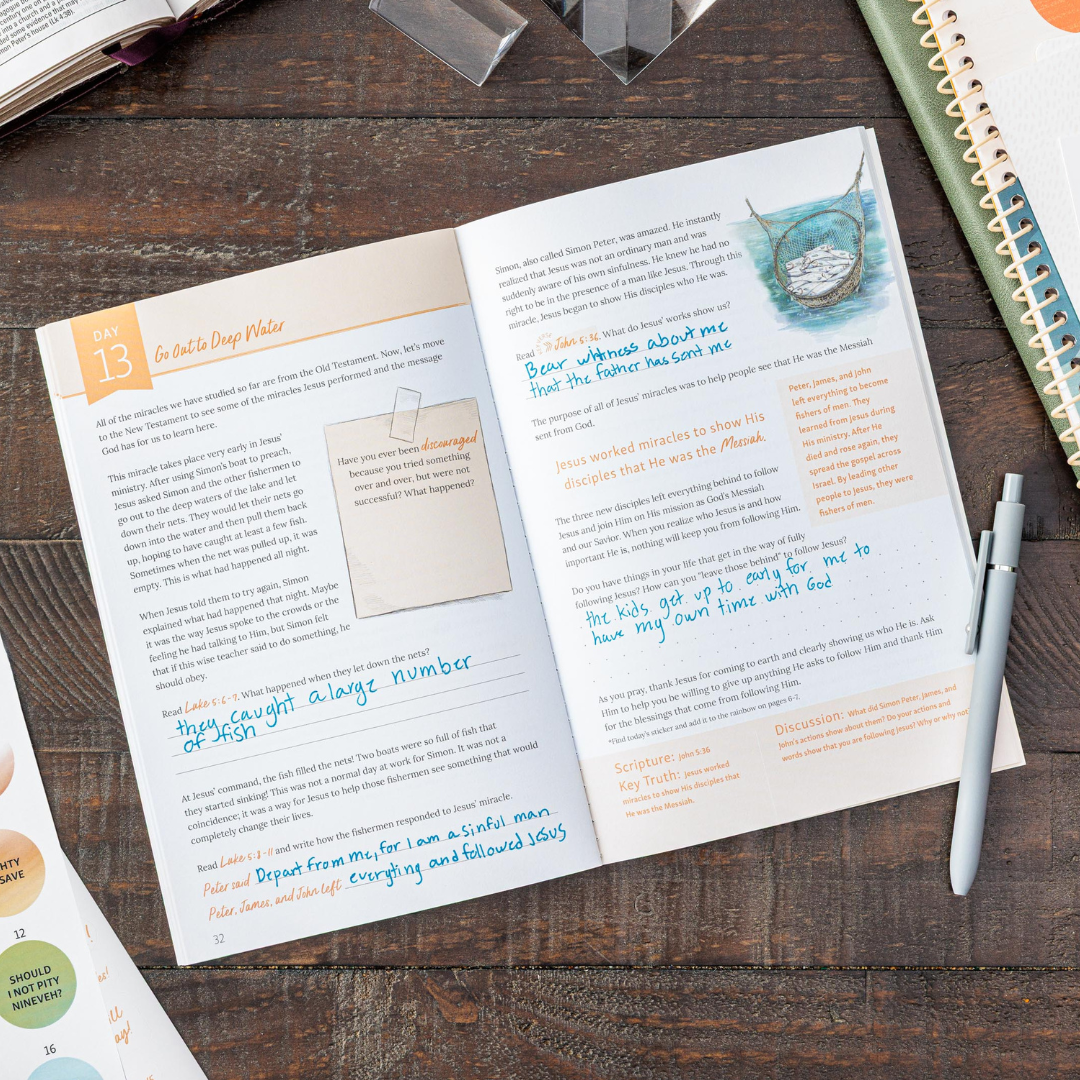 century one on
into a church and a
ded some evidence that may
mon Peter's house (Lk 4:38).
DAY
13
Go Out to Deep Water
All of the miracles we have studied so far are from the Old Testament. Now, let's move
to the New Testament to see some of the miracles Jesus performed and the message
God has for us to learn here.
This miracle takes place very early in Jesus'
ministry. After using Simon's boat to preach,
Jesus asked Simon and the other fishermen to
go out to the deep waters of the lake and let
down their nets. They would let their nets go
down into the water and then pull them back
up, hoping to have caught at least a few fish.
Sometimes when the net was pulled up, it was
empty. This is what had happened all night.
Have you ever been discouraged
because you tried something
over and over, but were not
successful? What happened?
When Jesus told them to try again, Simon
explained what had happened that night. Maybe
it was the way Jesus spoke to the crowds or the
feeling he had talking to Him, but Simon felt
that if this wise teacher said to do something, he
should obey.
Read Luke 5:6-7. What happened when they let down the nets?
they caught a large number
of fish
At Jesus' command, the fish filled the nets! Two boats were so full of fish that
they started sinking! This was not a normal day at work for Simon. It was not a
coincidence; it was a way for Jesus to help those fishermen see something that would
completely change their lives.
Read Luke 5:8-11 and write how the fishermen responded to Jesus' miracle.
Peter said Depart from me, for I am a sinful man
Peter, James, and John left everyting and followed Jesus
32
Simon, also called Simon Peter, was amazed. He instantly
realized that Jesus was not an ordinary man and was
suddenly aware of his own sinfulness. He knew he had no
right to be in the presence of a man like Jesus. Through this
miracle, Jesus began to show His disciples who He was.
Read John 5:36. What do Jesus' works show us?
Bear whitness about me
that the father has sent me
The purpose of all of Jesus' miracles was to help people see that He was the Messiah
sent from God.
Jesus worked miracles to show His
disciples that He was the Messiah.
Peter, James, and John
left everything to become
fishers of men. They
learned from Jesus during
His ministry. After He
died and rose again, they
spread the gospel across
Israel. By leading other
people to Jesus, they were
fishers of men.
The three new disciples left everything behind to follow
Jesus and join Him on His mission as God's Messiah
and our Savior. When you realize who Jesus is and how
important He is, nothing will keep you from following Him.
Do you have things in your life that get in the way of fully
following Jesus? How can you "leave those behind" to follow Jesus?
the kids get up to early for me to
have my own time with God
As you pray, thank Jesus for coming to earth and clearly showing us who He is. Ask
Him to help you be willing to give up anything He asks to follow Him and thank Him
for the blessings that come from following Him.
*Find today's sticker and add it to the rainbow on pages 6-7.
Scripture: John 5:36
Key Truth: Jesus worked
miracles to show His disciples that
He was the Messiah.
Discussion: What did Simon Peter, James, and
John's actions show about them? Do your actions and
words show that you are following Jesus? Why or why not
HTY
SAVE
12
SHOULD
I NOT PITY
NINEVEH?
16